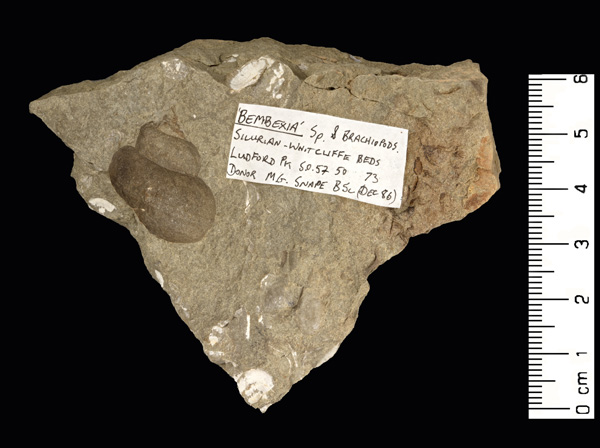 'BEMBEXIA' Sp. & BRACHIOPODS.
SILURIAN - WHITCLIFFE BEDS
LUDFORD PK SO.57 50 73
DONOR M.G. SNAPE BSc (DEC 86)
6
5
4
3
2
1
0 cm